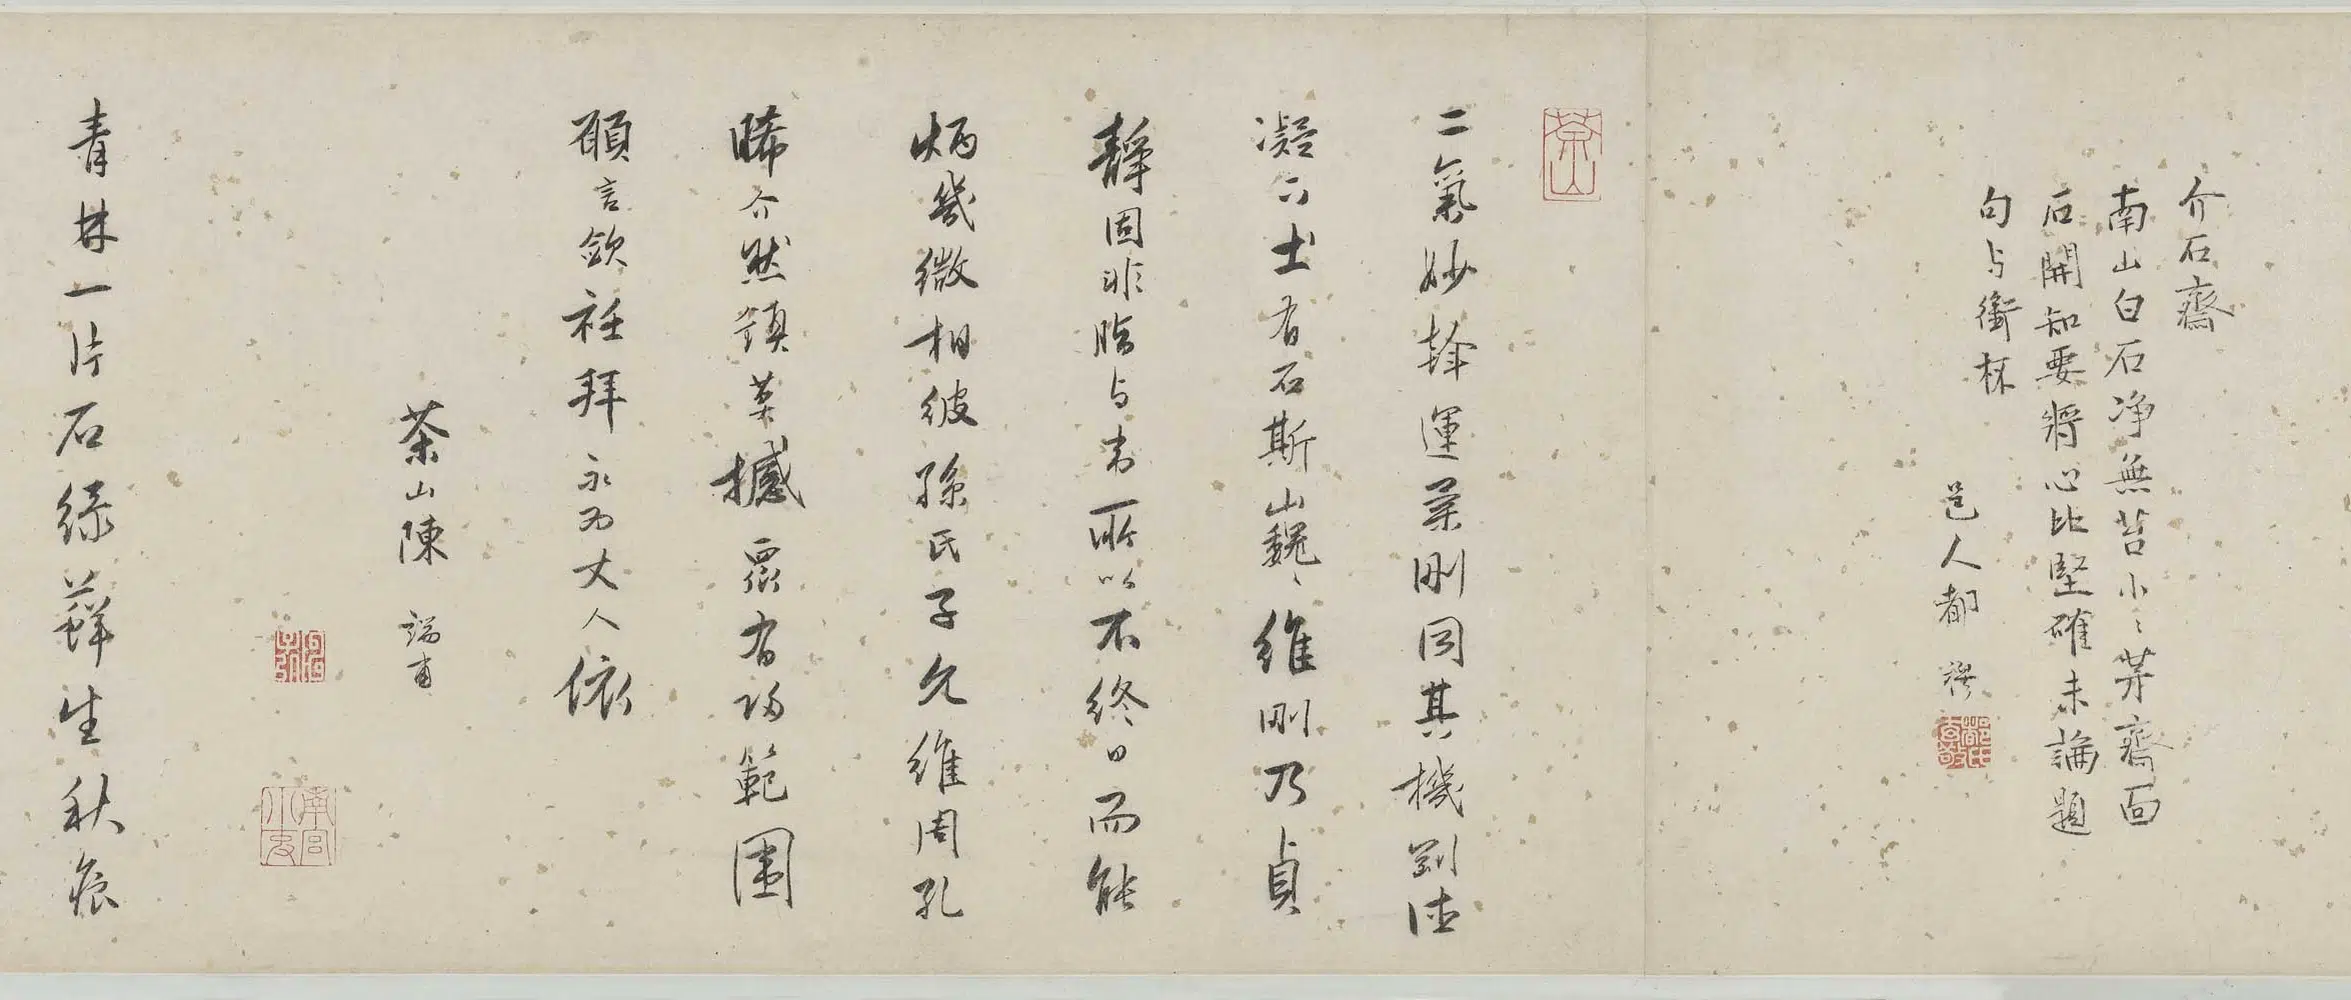 介石齋
南山白石净無苔小〻茅齋面
石開知要將心比堅確未論題
句与銜杯
邑人都 穆
都氏玄敬
茶山
二氣妙斡運柔剛同其機剛德
凝六士有石斯山巍〻維剛乃貞
靜固非脂与韋所以不終日而能
炳幾微相彼孫氏子允維周孔
睎介然鎮莫撼眾有歸範圍
願言斂衽拜永為丈人依
茶山陳 端甫
青林一片石綠蘚生秋痕